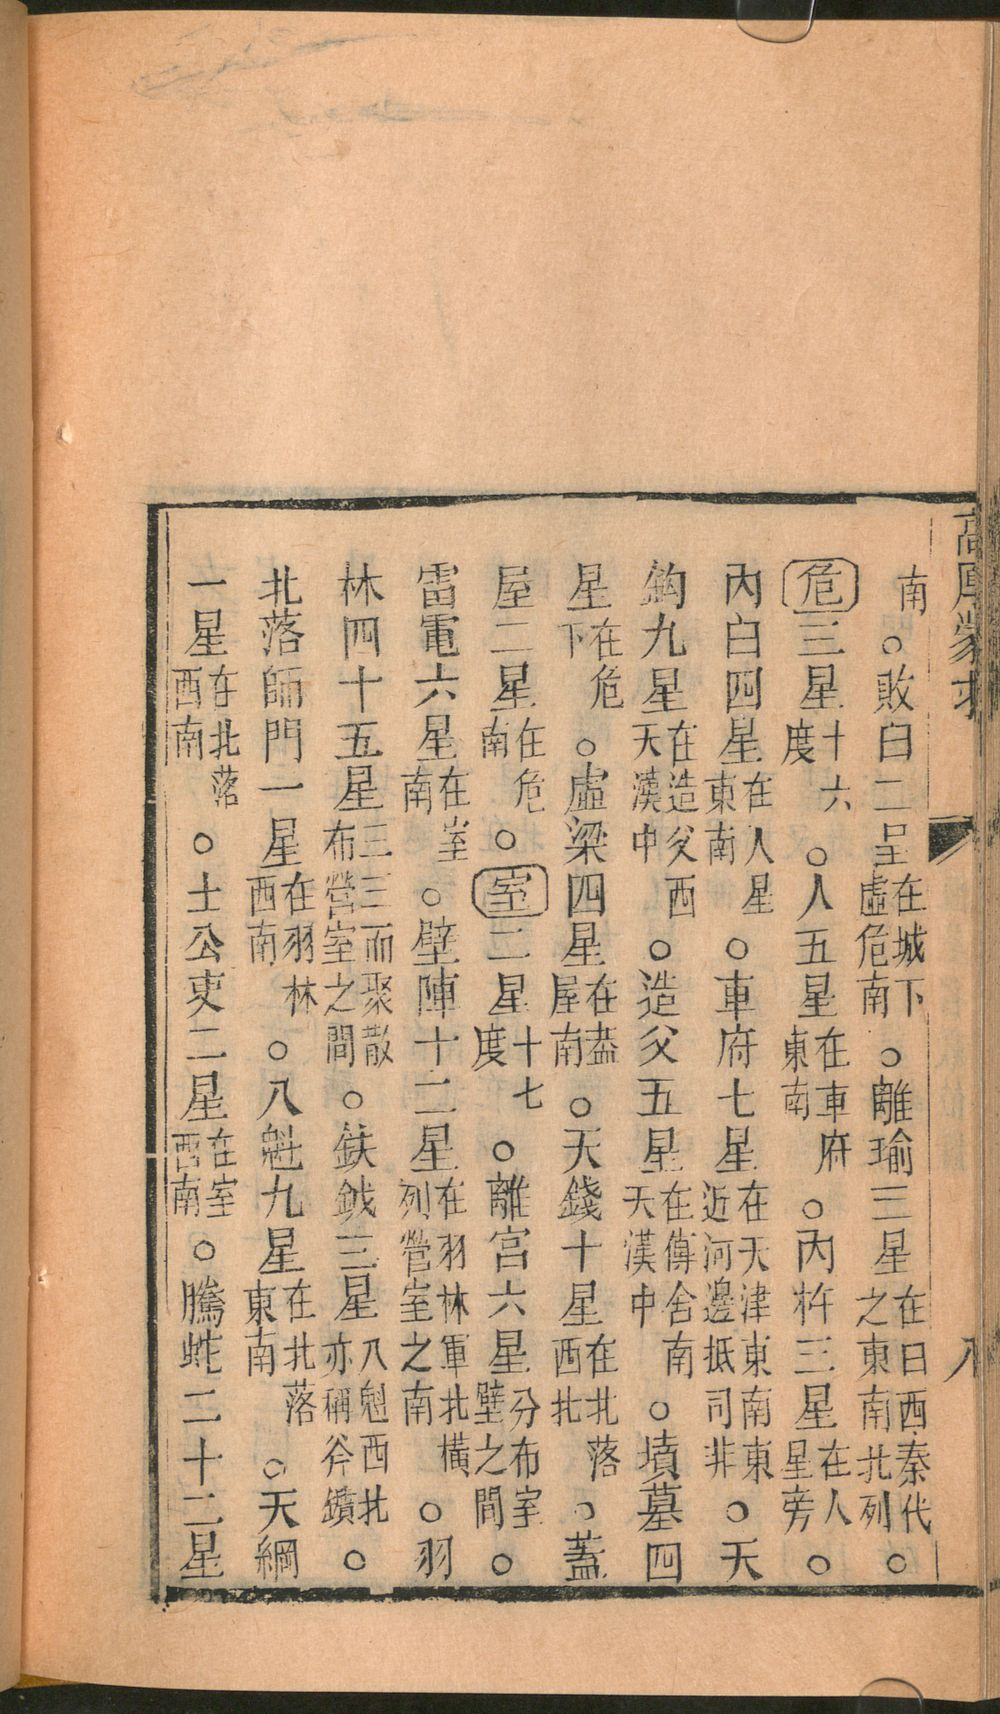 高厚蒙求
八
南○敗臼二星在城下虛危南○離瑜三星在臼西秦代之東南北列○
危三星十六度○人五星在車府東南○內杵三星在人星旁○
內臼四星在人星東南○車府七星在天津東南東近河邊抵司非○天
鉤九星在造父西天漢中○造父五星在傳舍南天漢中○墳墓四
星在危下○虛梁四星在蓋屋南○天錢十星在北落西北○蓋
屋二星在危南○室二星十七度○離宮六星分布室壁之間○
雷電六星在室南○壁陣十二星在羽林軍北橫列營室之南○羽
林四十五星三三而聚散布營室之間○鈇鉞三星八魁西北亦稱斧鑕○
北落師門一星在羽林西南○八魁九星在北落東南○天綱
一星在北落西南○土公吏二星在室西南○騰蛇二十二星